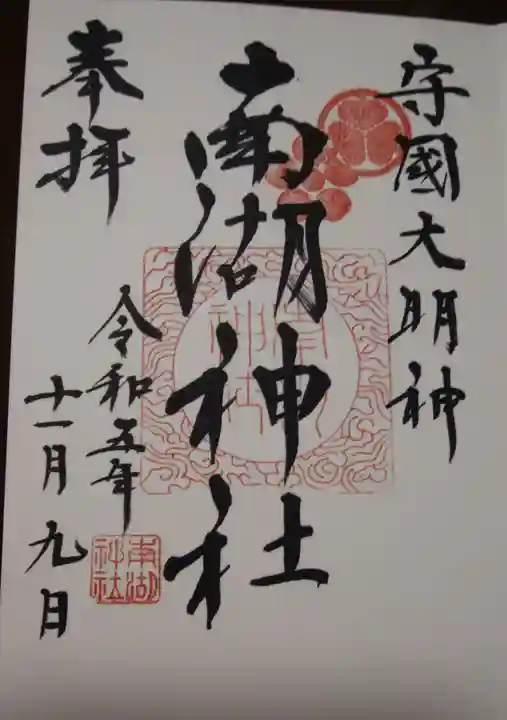 守國大明神
南湖神社
奉拝
令和五年
十一月九日
南湖神社
南湖神社